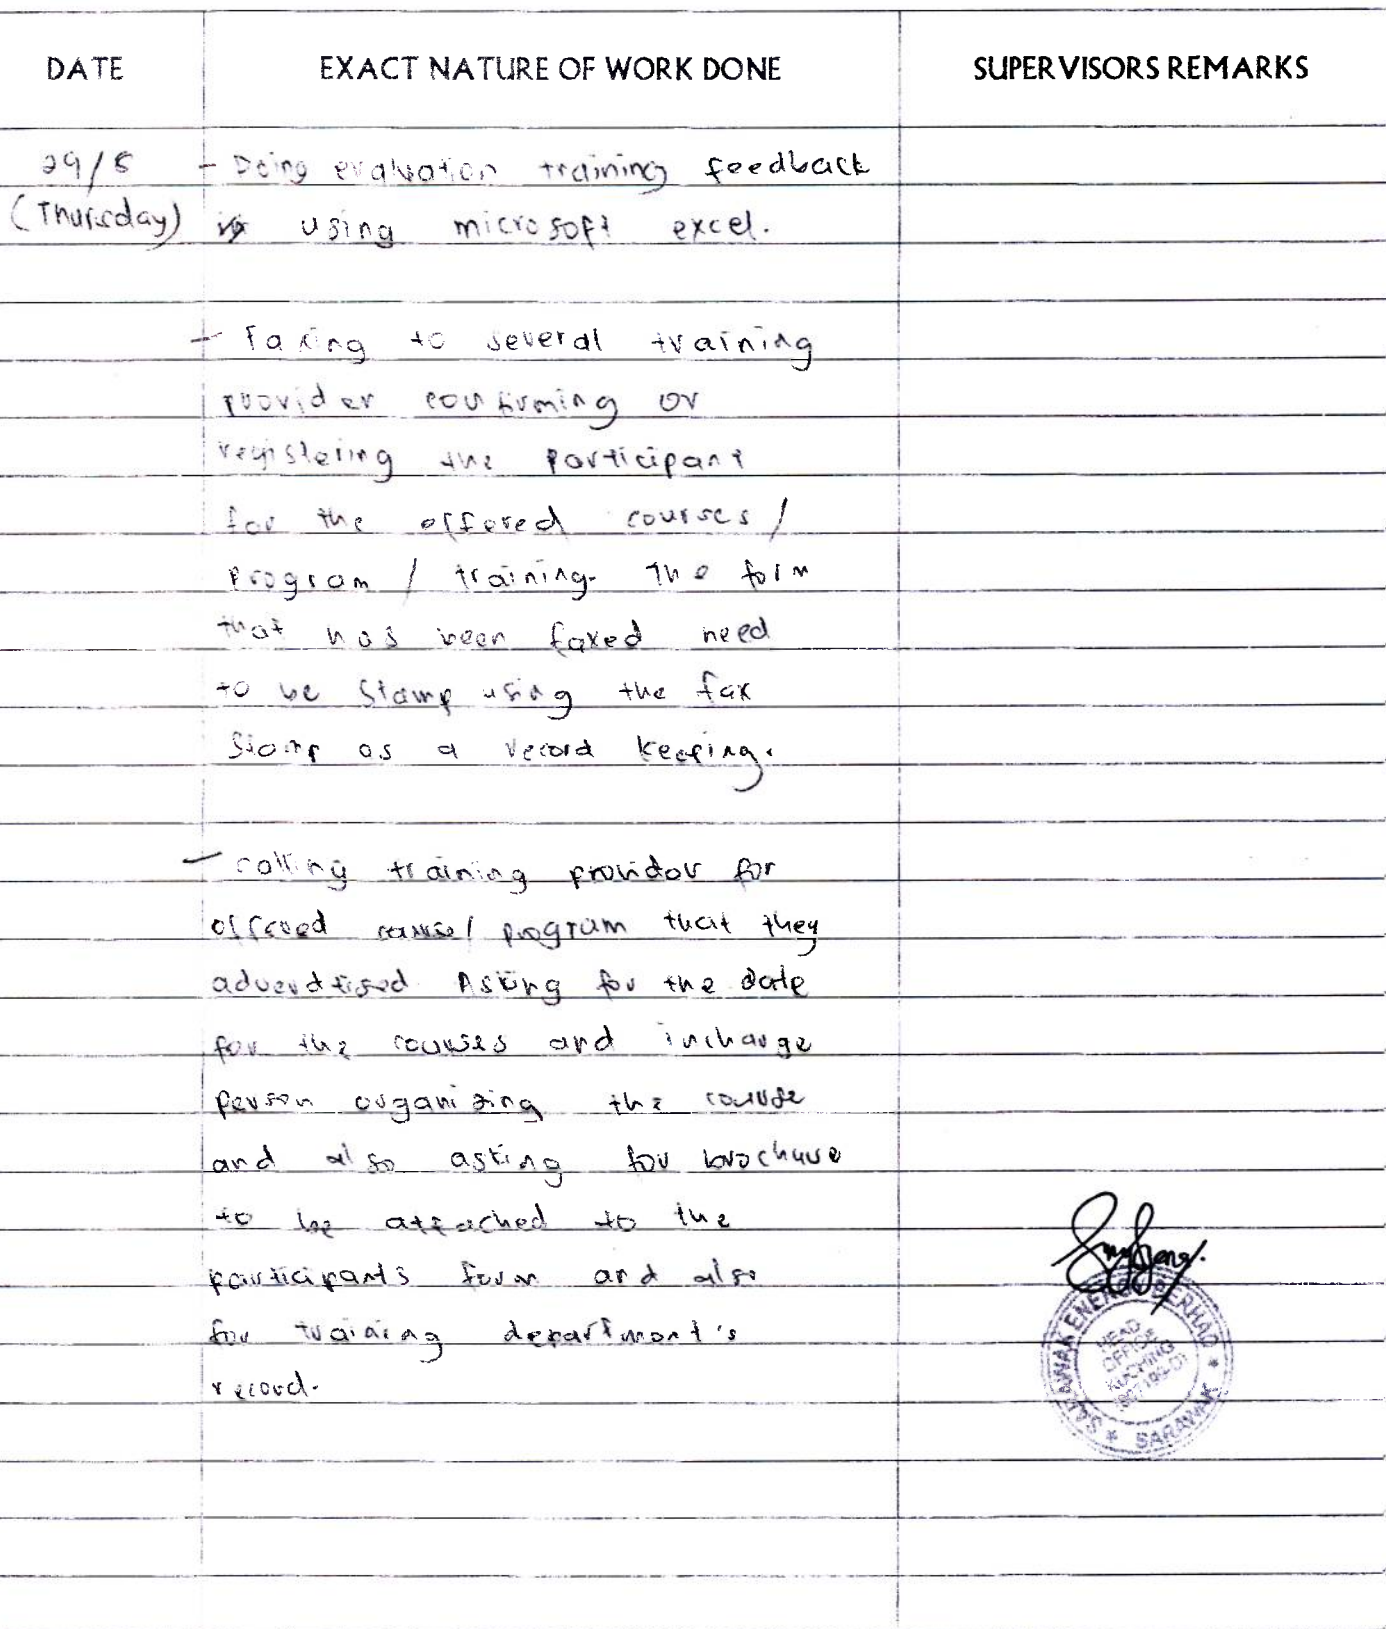 DATE EXACT NATURE OF WORK DONE SUPERVISORS REMARKS
29/5 - Doing evaluation training feedback
(Thursday) using microsoft excel.
- Faxing to several training
provider confirming or
registering the participant
for the offered courses /
program / training. The form
that has been faxed need
to be stamp using the fax
stamp as a record keeping.
- calling training provider for
offered course/ program that they
advertised Asking for the date
for the courses and incharge
person organizing the course
and also asking for brochure
to be attached to the
participants form and also
for training department's
record.
SARAWAK ENERGY BERHAD
HEAD
OFFICE
KUCHING
* SARAWAK *